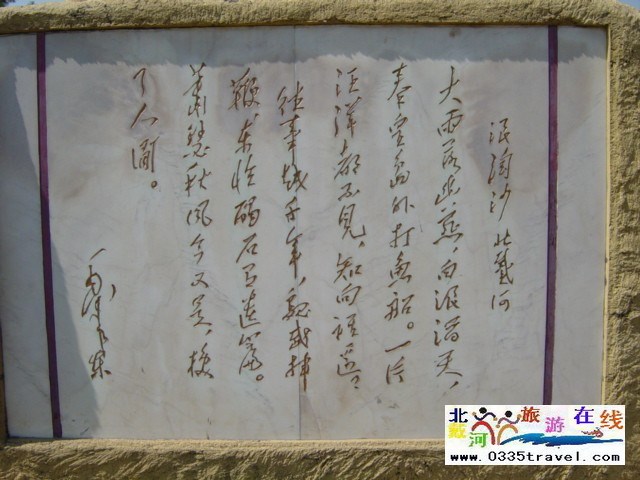 浪淘沙 北戴河
大雨落幽燕,白浪滔天,
秦皇岛外打魚船。一片
汪洋都不見,知向谁边?
往事越千年,魏武挥
鞭,东临碣石有遗篇。
萧瑟秋风今又是,换
了人间。
毛泽东
北戴河旅游在线
www.0335travel.com